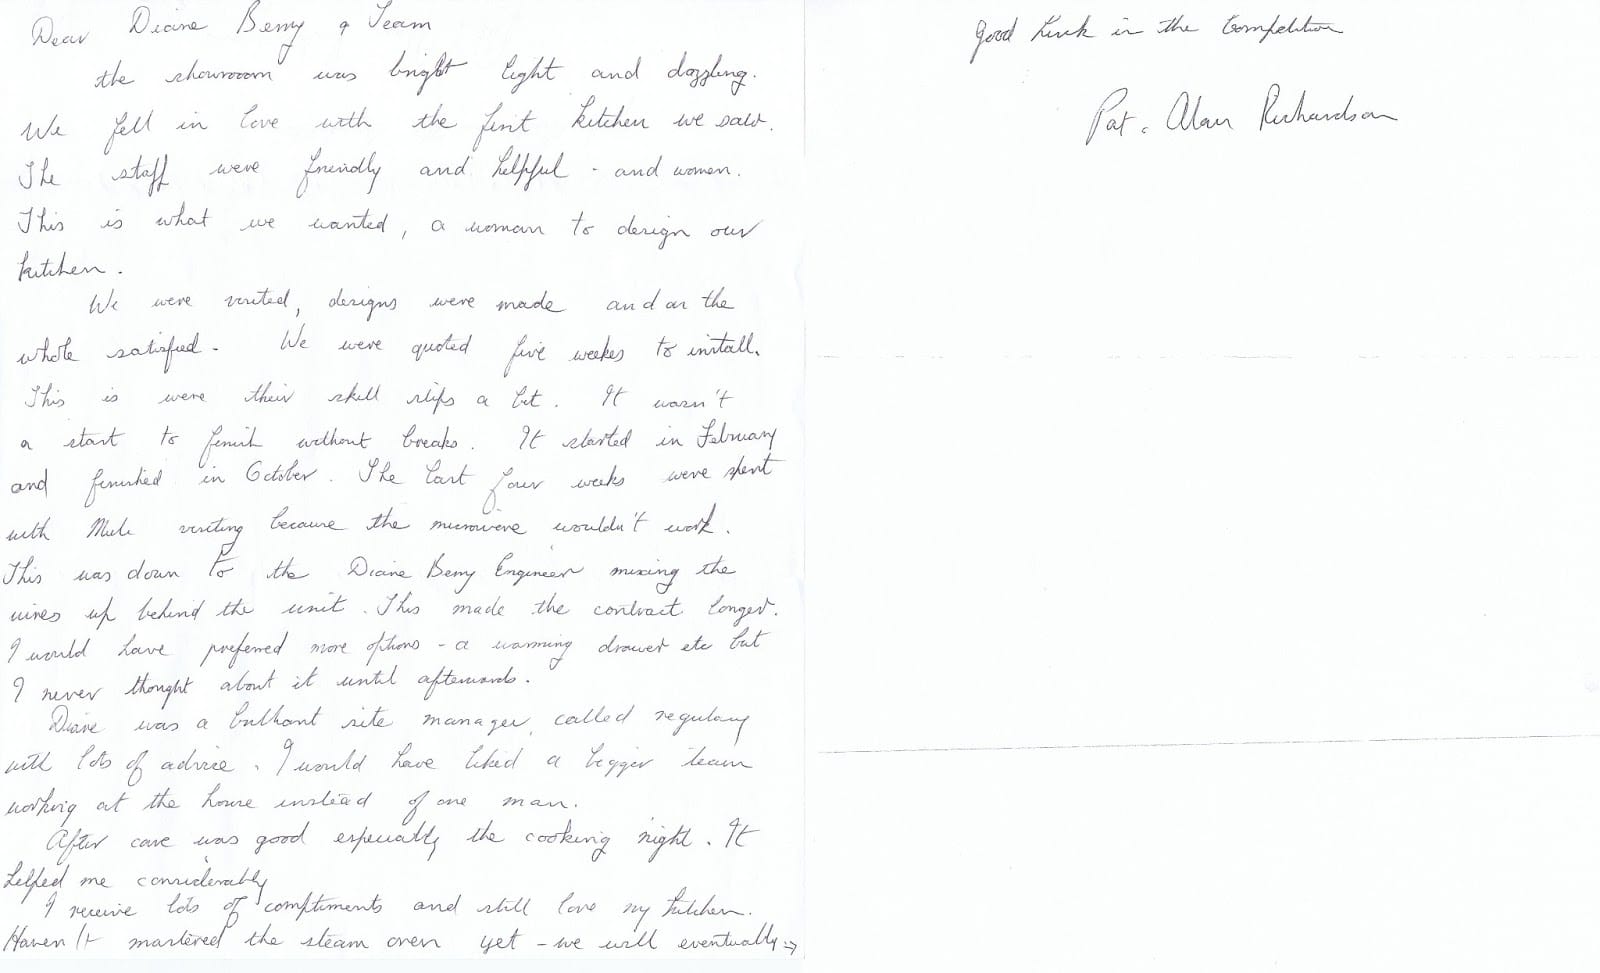 Dear Diane Berry & Team
the showroom was bright light and dazzling.
We fell in love with the first kitchen we saw.
The staff were friendly and helpful - and women.
This is what we wanted, a woman to design our
kitchen.
We were visited, designs were made and on the
whole satisfied. We were quoted five weekes to install.
This is were their skill slips a bit. It wasn't
a start to finish without breaks. It started in February
and finished in October. The last four weeks were spent
with Miele visiting because the microwave wouldn't work.
This was down to the Diane Berry Engineer mixing the
wires up behind the unit. This made the contract longer.
I would have preferred more options - a warming drawer etc but
I never thought about it until afterwards.
Diane was a brilliant site manager, called regulary
with lots of advice. I would have liked a bigger team
working at the house instead of one man.
After care was good especially the cooking night. It
helped me considerably
I receive lots of compliments and still love my kitchen.
Haven't mastered the steam oven yet - we will eventually →
Good Luck in the Competition
Pat & Alan Richardson